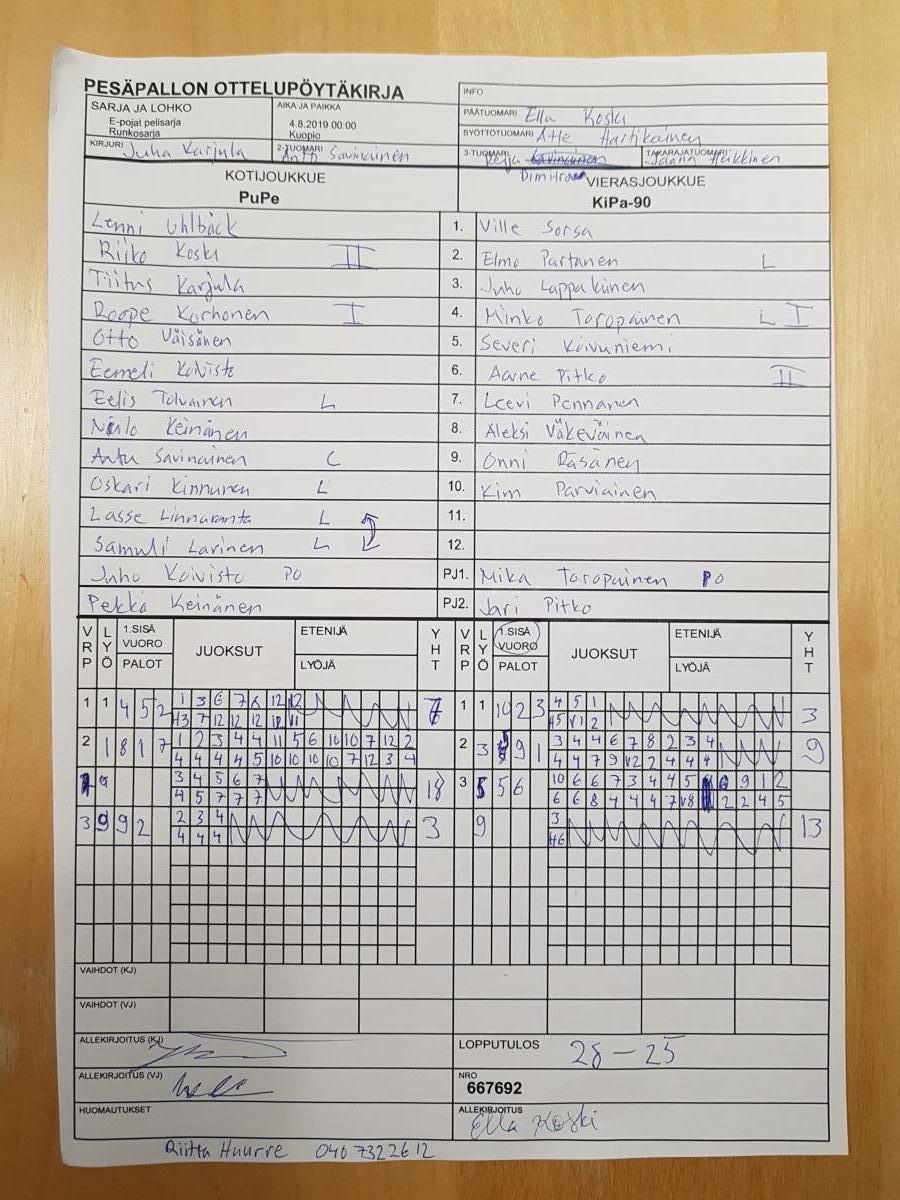 PESÄPALLON OTTELUPÖYTÄKIRJA
INFO
SARJA JA LOHKO
E-pojat pelisarja
Runkosarja
AIKA JA PAIKKA
4.8.2019 00:00
Kuopio
PÄÄTUOMARI Ella Koski
SYÖTTÖTUOMARI Atte Hartikainen
KIRJURI Juha Karjula
2-TUOMARI Antti Savinainen
3-TUOMARI
Dimitrow
TAKARAJATUOMARI Jaana Heikkinen
KOTIJOUKKUE
PuPe
VIERASJOUKKUE
KiPa-90
Lenni Uhlbäck 1. Ville Sorsa
Riiko Koski II 2. Elmo Partanen L
Tiitus Karjula 3. Juho Lappalainen
Roope Korhonen I 4. Minko Toropainen L I
Otto Väisänen 5. Severi Koivuniemi
Eemeli Koivisto 6. Aarne Pitko II
Eelis Tolvainen L 7. Leevi Pennanen
Niilo Keinänen 8. Aleksi Väkeväinen
Antu Savinainen C 9. Onni Räsänen
Oskari Kinnunen L 10. Kim Parviainen
Lasse Linnaranta L 11.
Samuli Larinen L 12.
Juho Koivisto PO PJ1. Mika Toropainen PO
Pekka Keinänen PJ2. Jari Pitko
VRP LYÖ 1.SISÄ VUORO PALOT JUOKSUT ETENIJÄ LYÖJÄ YHT
VRP LYÖ 1.SISÄ VUORO PALOT JUOKSUT ETENIJÄ LYÖJÄ YHT
1 1 4 5 2 1 3 6 7 8 12 12 7
H3 7 12 12 12 11
1 1 10 2 3 4 5 1 3
H5 V1 2
2 1 8 1 7 1 2 3 4 4 11 5 6 10 10 7 12 2
4 4 4 4 5 10 10 10 10 7 12 3 4
2 3 9 1 3 4 4 6 7 8 2 3 4 9
4 4 7 9 V2 2 4 4 4
9 3 4 5 6 7 18
4 5 7 7 7
3 5 5 6 10 6 6 7 3 4 4 5 9 1 2
6 6 8 4 4 4 7 V8 2 2 4 5
3 9 9 2 2 3 4 3
4 4 4
9 3 13
H6
VAIHDOT (KJ)
VAIHDOT (VJ)
ALLEKIRJOITUS (KJ)
LOPPUTULOS 28 - 25
ALLEKIRJOITUS (VJ)
NRO
667692
HUOMAUTUKSET
ALLEKIRJOITUS
Ella Koski
Riitta Huurre 040 7322612